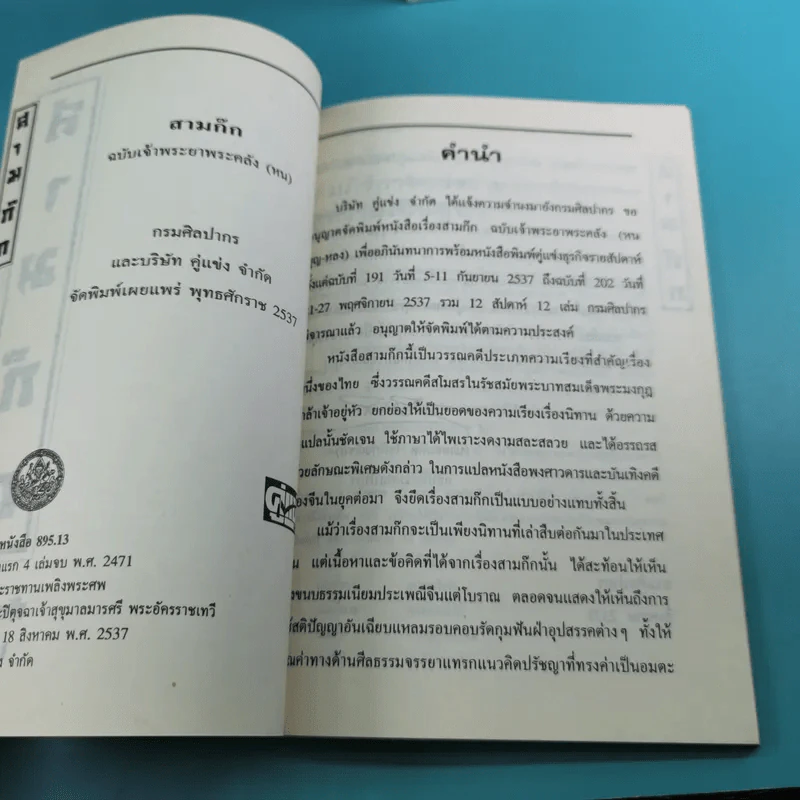 สามก๊ก
สามก๊ก
ฉบับเจ้าพระยาพระคลัง (หน)
กรมศิลปากร
และบริษัท คู่แข่ง จำกัด
จัดพิมพ์เผยแพร่ พุทธศักราช 2537
คู่แข่ง
หนังสือ 895.13
แรก 4 เล่มจบ พ.ศ. 2471
ะราชทานเพลิงพระศพ
ะปิตุจฉาเจ้าสุขุมาลมารศรี พระอัครราชเทวี
18 สิงหาคม พ.ศ. 2537
ง จำกัด
คำนำ
บริษัท คู่แข่ง จำกัด ได้แจ้งความจำนงมายังกรมศิลปากร ขอ
อนุญาตจัดพิมพ์หนังสือเรื่องสามก๊ก ฉบับเจ้าพระยาพระคลัง (หน
บุญ-หลง) เพื่ออภินันทนาการพร้อมหนังสือพิมพ์คู่แข่งธุรกิจรายสัปดาห์
ตั้งแต่ฉบับที่ 191 วันที่ 5-11 กันยายน 2537 ถึงฉบับที่ 202 วันที่
1-27 พฤศจิกายน 2537 รวม 12 สัปดาห์ 12 เล่ม กรมศิลปากร
พิจารณาแล้ว อนุญาตให้จัดพิมพ์ได้ตามความประสงค์
หนังสือสามก๊กนี้เป็นวรรณคดีประเภทความเรียงที่สำคัญเรื่อง
หนึ่งของไทย ซึ่งวรรณคดีสโมสรในรัชสมัยพระบาทสมเด็จพระมงกุฎ
กล้าเจ้าอยู่หัว ยกย่องให้เป็นยอดของความเรียงเรื่องนิทาน ด้วยความ
แปลนั้นชัดเจน ใช้ภาษาได้ไพเราะงดงามสละสลวย และได้อรรถรส
วยลักษณะพิเศษดังกล่าว ในการแปลหนังสือพงศาวดารและบันเทิงคดี
องจีนในยุคต่อมา จึงยึดเรื่องสามก๊กเป็นแบบอย่างแทบทั้งสิ้น
แม้ว่าเรื่องสามก๊กจะเป็นเพียงนิทานที่เล่าสืบต่อกันมาในประเทศ
น แต่เนื้อหาและข้อคิดที่ได้จากเรื่องสามก๊กนั้น ได้สะท้อนให้เห็น
งขนบธรรมเนียมประเพณีจีนแต่โบราณ ตลอดจนแสดงให้เห็นถึงการ
ช้สติปัญญาอันเฉียบแหลมรอบคอบรัดกุมฟันฝ่าอุปสรรคต่างๆ ทั้งให้
ุณค่าทางด้านศีลธรรมจรรยาแทรกแนวคิดปรัชญาที่ทรงค่าเป็นอมตะ